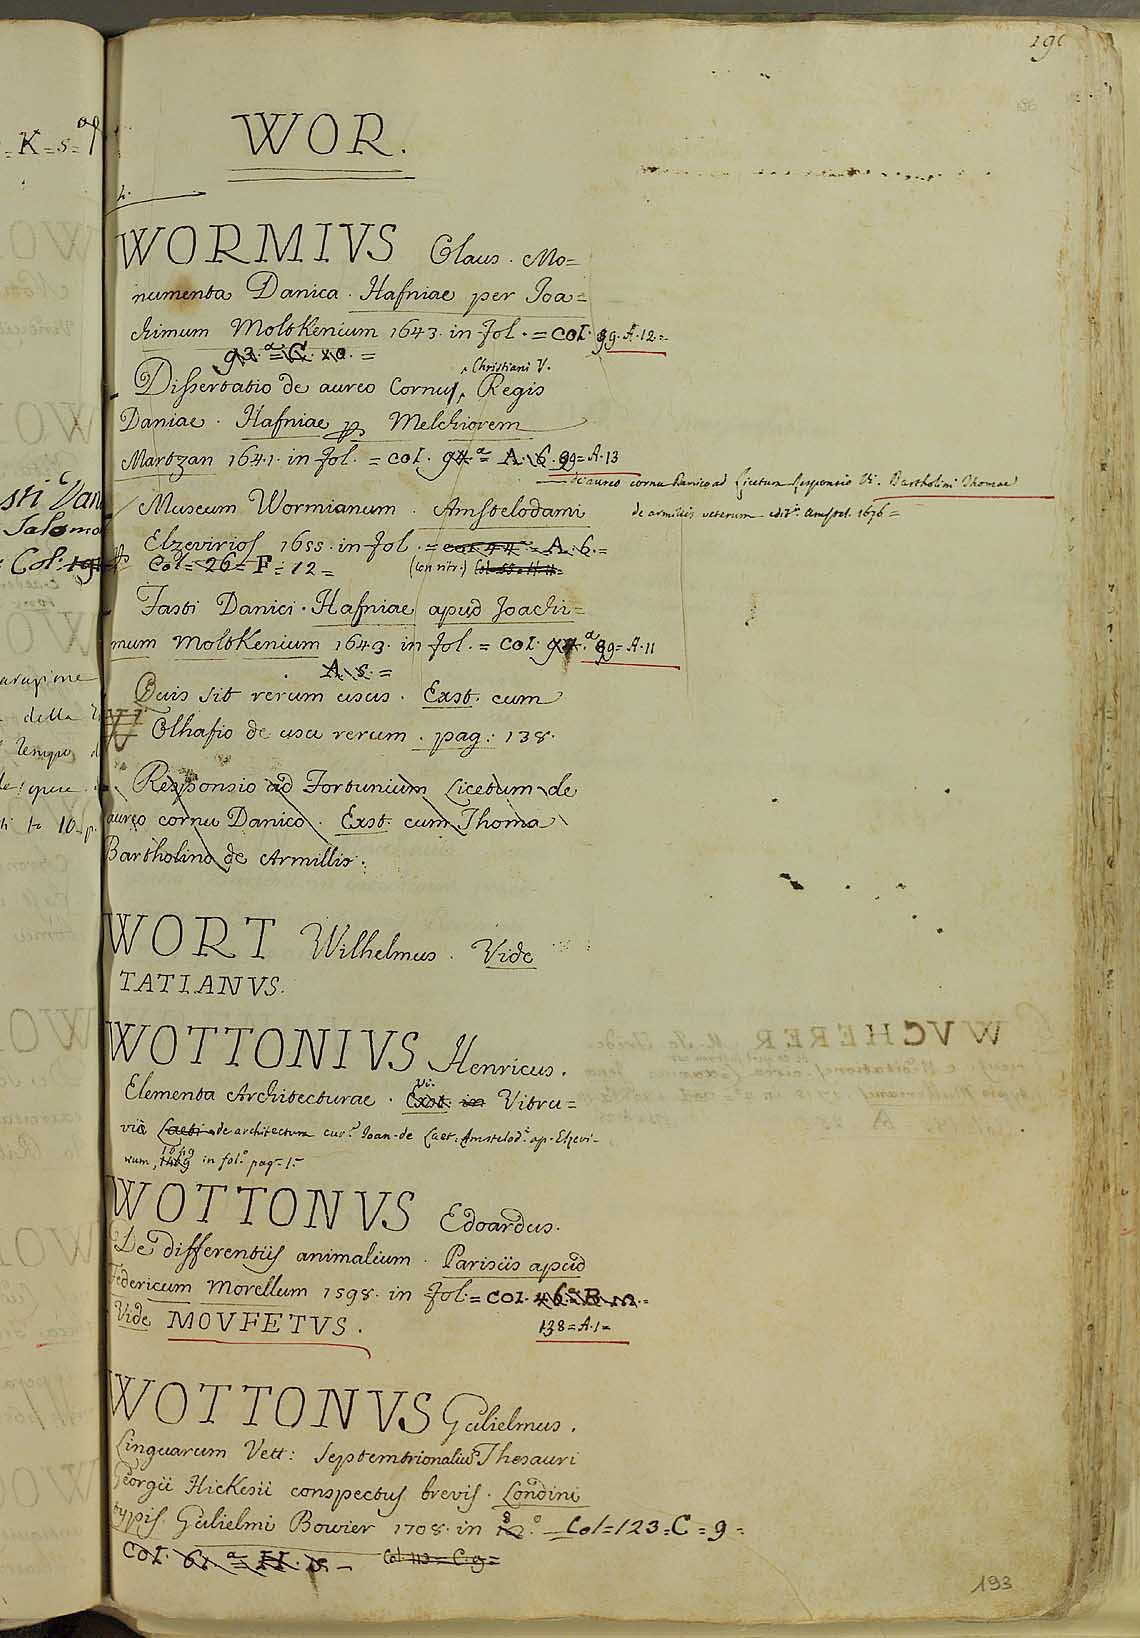 WOR.
WORMIVS Olaus. Mo=
numenta Danica. Hafniae per Joa=
chimum MoltKenium 1643. in fol. = COL. 99. A. 12=
93. a = C. 10. =
Dissertatio de aureo Cornu, Christiani V. Regis
Daniae. Hafniae Melchiorem
Martzan 1641. in fol. = COL. 94. a = A. 6. 99= A. 13
de aureo cornu Danico ad Licetum Responsio Vi. Bartholini Thomae
de armillis veterum edit. Amstel. 1676 =
Museum Wormianum. Amstelodami
Elzevirios 1655. in fol. = COL 44 = A. 6. =
Col = 26 = F = 12 = (con vitr.)
Fasti Danici. Hafniae apud Joachi=
mum MoltKenium 1643. in fol. = COL. 94. a 99= A. 11
A. 5. =
Quis sit rerum usus. Exst. cum
Olhafio de usu rerum. pag: 138.
Responsio ad Fortunium Licetum de
aureo cornu Danico. Exst. cum Thoma
Bartholino de Armillis.
WORT Wilhelmus. Vide
TATIANVS.
WOTTONIVS Henricus.
Elementa Architecturae. Exst. in Vi. Vitru=
vio Laeti de architectura cur. Joan. de Laet. Amstelod. ap. Elzevi-
rium, 1649 in fol. pag. 1. =
WOTTONVS Edoardus.
De differentiis animalium. Parisiis apud
Federicum Morellum 1598. in fol. = COL. 46.
Vide MOVFETVS. 138 = A. 1 =
WOTTONVS Gulielmus.
Linguarum Vett: Septemtrionalium Thesauri
Georgii HicKesii conspectus brevis. Londini
typis Gulielmi Bowier 1708. in 8.° Col = 123 = C = 9 =
COL. 61. a = H. Col. 113 = C. 9 =
193